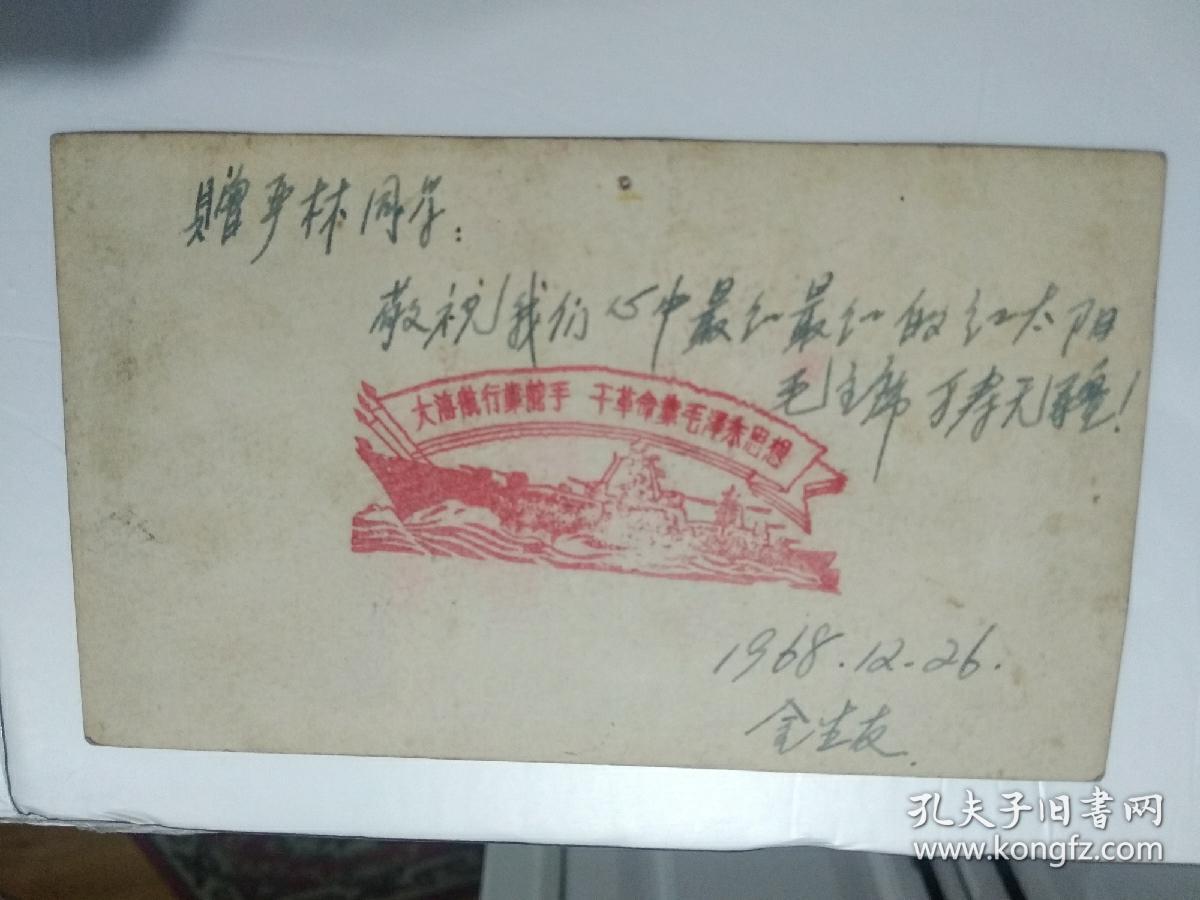 贈严林同学:
敬祝我们心中最红最红的红太阳
毛主席万寿无疆!
大海航行靠舵手 干革命靠毛澤东思想
1968.12.26.
金生友.
孔夫子旧書网
www.kongfz.com